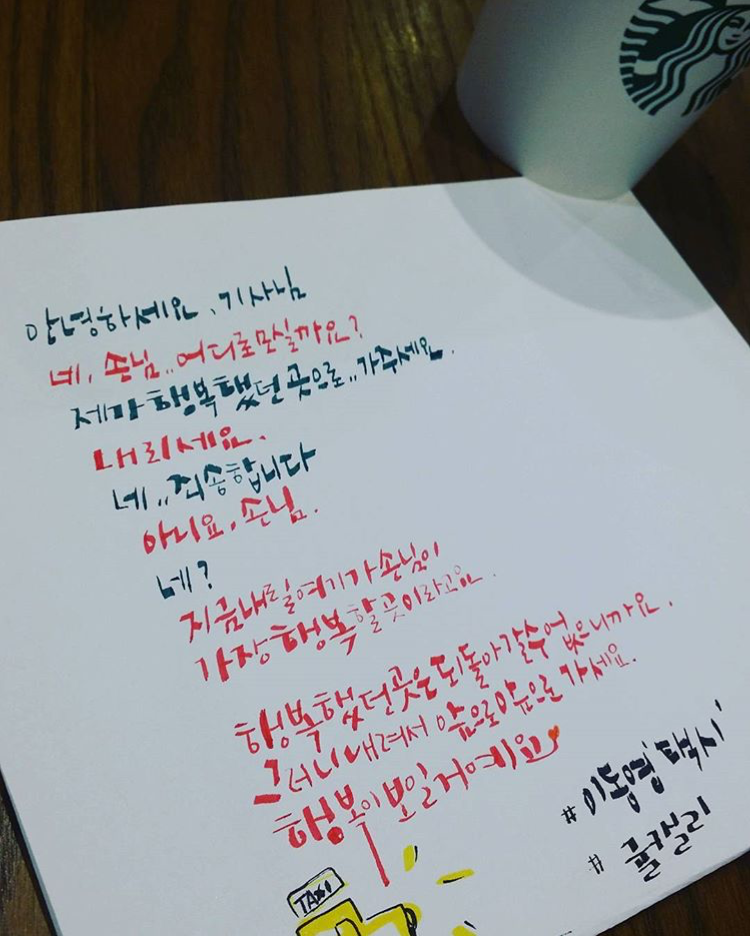 안녕하세요, 기사님
네, 손님..어디로모실까요?
제마 행복했던 곳으로..가주세요.
내리세요.
네..죄송합니다
아니요, 손님.
네?
지금내릴여기가 손님이
가장 행복할곳이라고요.
행복했던곳은 되돌아갈수 없으니까요.
그러니 내려서 앞으로 앞으로 가세요.
행복이 보일거예요
#이동영'택시'
#펄캘리
TAXI